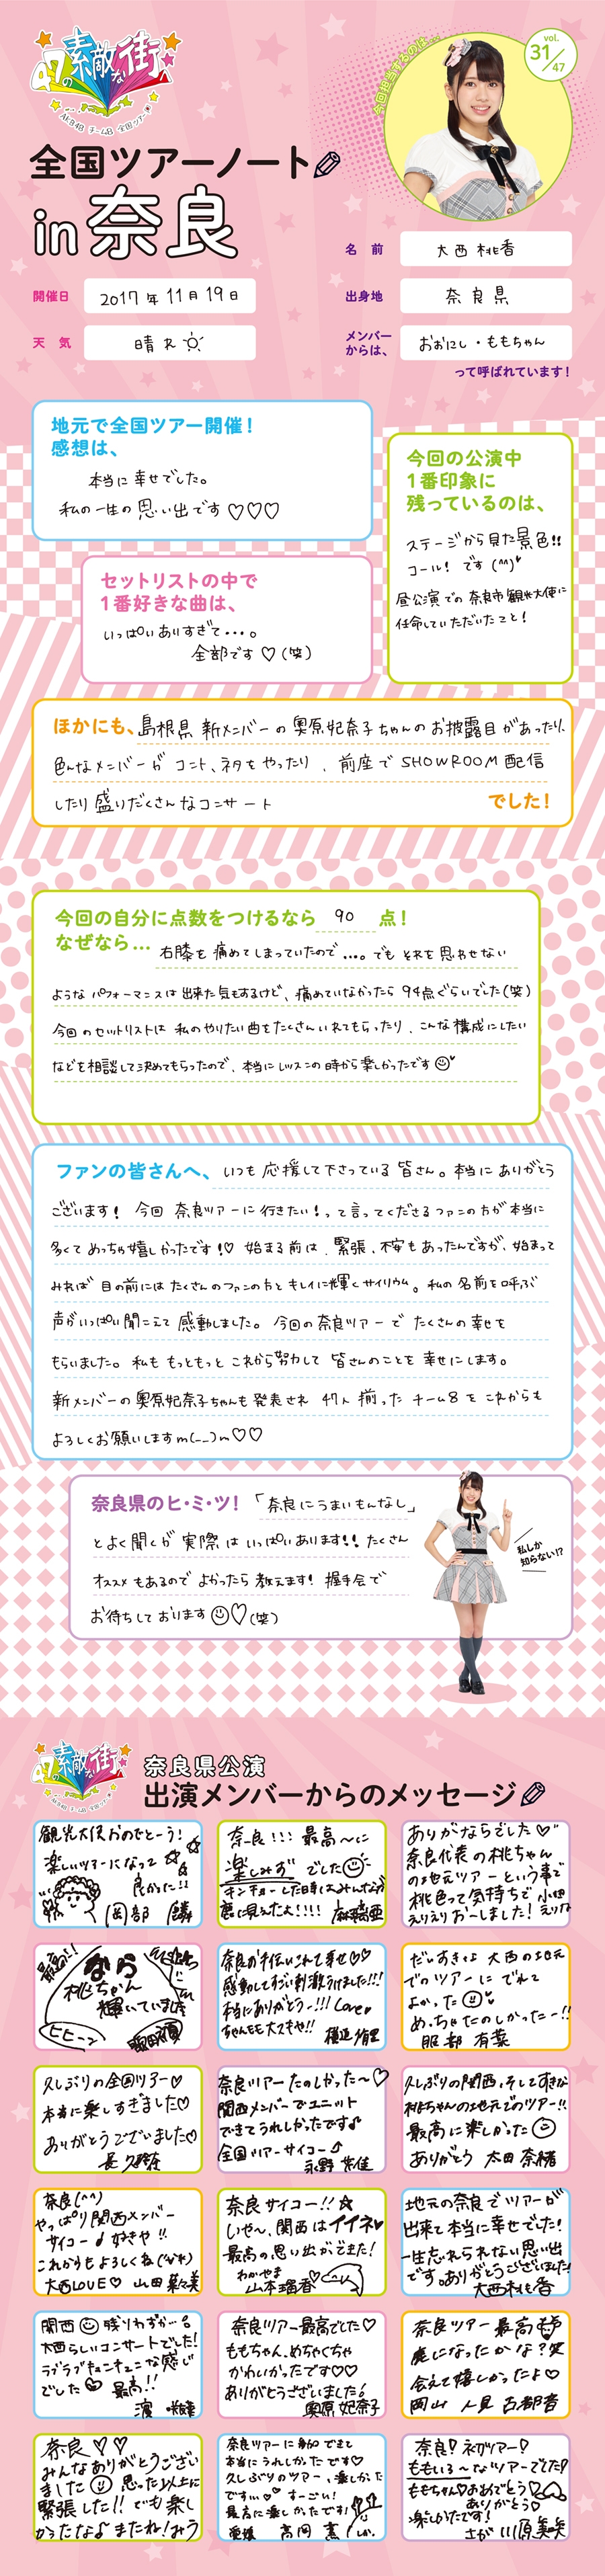 47の素敵な街
AKB48 チーム8 全国ツアー
今回担当するのは…
vol.
31/47
全国ツアーノート
in 奈良
名 前 大西桃香
開催日 2017年11月19日
出身地 奈良県
天 気 晴れ
メンバーからは、 おおにし・ももちゃん
って呼ばれています！
地元で全国ツアー開催！
感想は、
本当に幸せでした。
私の一生の思い出です♡♡♡
今回の公演中
1番印象に
残っているのは、
ステージから見た景色!!
コール！ です(^^)
昼公演での奈良市観光大使に
任命していただいたこと！
セットリストの中で
1番好きな曲は、
いっぱいありすぎて…。
全部です♡(笑)
ほかにも、島根県 新メンバーの奥原妃奈子ちゃんのお披露目があったり、
色んなメンバーがコント、ネタをやったり、前座でSHOWROOM配信
したり盛りだくさんなコンサート
でした！
今回の自分に点数をつけるなら 90 点！
なぜなら… 右膝を痛めてしまっていたので…。でもそれを思わせない
ようなパフォーマンスは出来た気もするけど、痛めていなかったら94点ぐらいでした(笑)
今回のセットリストは私のやりたい曲をたくさんいれてもらったり、こんな構成にしたい
などを相談して決めてもらったので、本当にレッスンの時から楽しかったです
ファンの皆さんへ、いつも応援して下さっている皆さん。本当にありがとう
ございます！ 今回 奈良ツアーに行きたい！って言ってくださるファンの方が本当に
多くてめっちゃ嬉しかったです！♡ 始まる前は、緊張、不安もあったんですが、始まって
みれば目の前にはたくさんのファンの方とキレイに輝くサイリウム。私の名前を呼ぶ
声がいっぱい聞こえて感動しました。今回の奈良ツアーでたくさんの幸せを
もらいました。私ももっともっとこれから努力して皆さんのことを幸せにします。
新メンバーの奥原妃奈子ちゃんも発表され 47人揃ったチーム8をこれからも
よろしくお願いしますm(__)m♡♡
奈良県のヒ・ミ・ツ！「奈良にうまいもんなし」
とよく聞くが実際はいっぱいあります!! たくさん
オススメもあるのでよかったら教えます！ 握手会で
お待ちしております♡(笑)
私しか
知らない!?
47の素敵な街
AKB48 チーム8 全国ツアー
奈良県公演
出演メンバーからのメッセージ
観光大使おめでとーう！
楽しいツアーになって
良かった!!
岡部 麟
奈良!!! 最高〜に
楽しみず でした
キンチョーした時はみんなが
鹿に見えたよ!!!!
ありがならでした♡
奈良代表の桃ちゃん
の地元ツアーという事で
桃色って気持ちで
えりえりお〜しました！
小田えりな
最高!!
なら
桃ちゃん
輝いていました
ヒヒーン
奈良お手伝いこれて幸せ♡♡
感動してすごい刺激うけました!!!
本当にありがとう〜!!! Love
横道侑里
だいすきな大西の地元
でのツアーにでれて
よかった
めっちゃたのしかったー!!
服部 有菜
久しぶりの全国ツアー♡
本当に楽しすぎました♡
ありがとうございました♡
長久玲奈
奈良ツアーたのしかった〜♡
関西メンバーでユニット
できてうれしかったです♪
全国ツアーサイコー
永野 芹佳
久しぶりの関西、そして大好きな
桃ちゃんの地元でのツアー!!
最高に楽しかった
ありがとう 太田 奈緒
奈良(^^)
やっぱり関西メンバー
サイコー♪好きや!!
これからもよろしくね
大西LOVE♡ 山田菜々美
奈良サイコー!!☆
いや〜、関西はイイネ♥
最高の思い出ができた！
わかやま
山本瑠香
地元の奈良でツアーが
出来て本当に幸せでした！
一生忘れられない思い出
です。ありがとうございました！
大西桃香
関西 残りわずか…。
大西らしいコンサートでした！
ラブラブキュンキュンな感じ
でした 最高!!
濵 咲友菜
奈良ツアー最高でした♡
ももちゃん、めちゃくちゃ
かわいかったです♡♡
ありがとうございました。
奥原妃奈子
奈良ツアー最高
鹿になったかな？笑
会えて嬉しかったよ♡
岡山 人見古都音
奈良♡♡
みんなありがとうござい
ました 思った以上に
緊張した!! でも楽し
かったなぁ またね！みう
奈良ツアーに参加できて
本当にうれしかったです♡
久しぶりのツアー、楽しかった
です…♡ すーごい！
最高に楽しかったです！
愛媛 高岡 薫
奈良！ネクツアー！
ももいろ〜なツアーでした！
ももちゃん♡おめでとう♡
ありがとう♡
楽しかったです！
さが 川原美咲